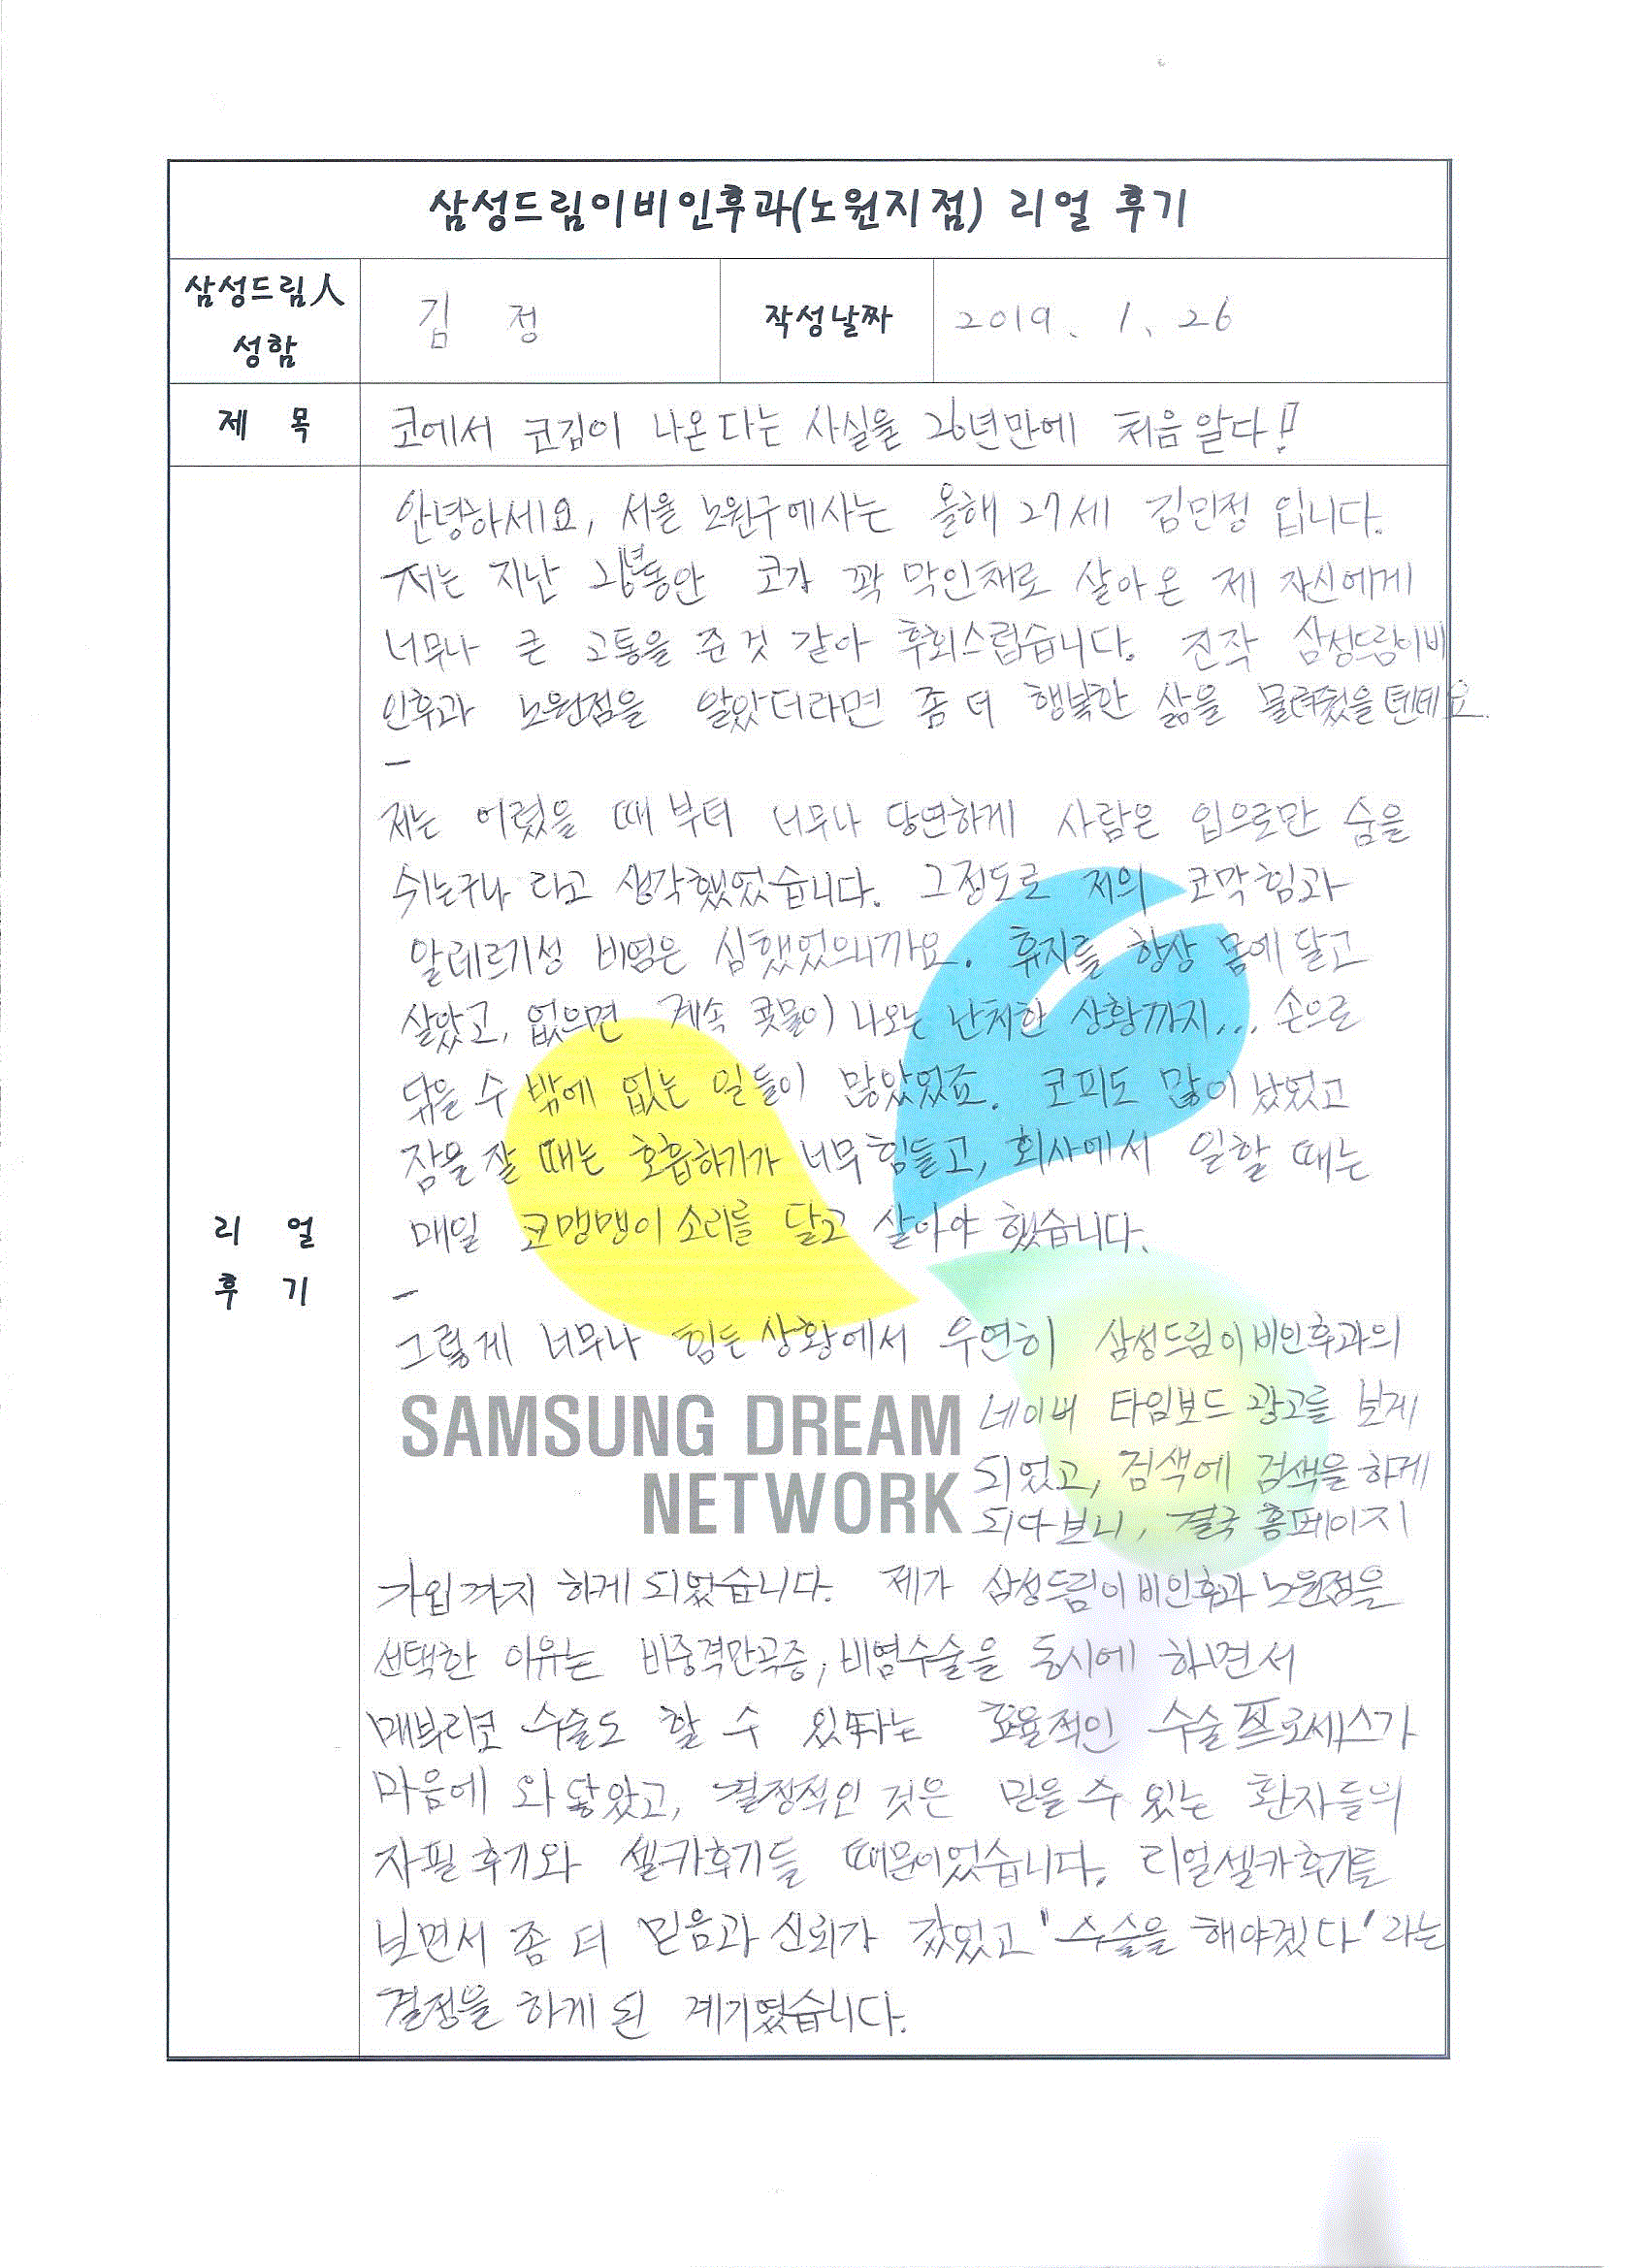 삼성드림이비인후과(노원지점) 리얼 후기
삼성드림人
성함
김 정
작성날짜
2019. 1. 26
제 목
코에서 코김이 나온다는 사실을 26년만에 처음 알다!!
리 얼
후 기
안녕하세요, 서울 노원구에사는 올해 27세 김민정 입니다.
저는 지난 동안 코가 꽉 막인채로 살아온 제 자신에게
너무나 큰 고통을 준것 같아 후회스럽습니다. 진작 삼성드림이비
인후과 노원점을 알았더라면 좀 더 행복한 삶을 텐데요
-
저는 어렸을 때 부터 너무나 당연하게 사람은 입으로만 숨을
쉬는구나 라고 생각했었습니다. 그정도로 저의 코막힘과
알레르기성 비염은 심했었으니까요. 휴지를 항상 몸에 달고
살았고, 없으면 계속 콧물이 나오는 난처한 상황까지... 손으로
닦을 수 밖에 없는 일들이 많았었죠. 코피도 많이 났었고
잠을 잘 때는 호흡하기가 너무 힘들고, 회사에서 일할 때는
매일 코맹맹이 소리를 달고 살아야 했습니다.
-
그렇게 너무나 힘든 상황에서 우연히 삼성드림이비인후과의
SAMSUNG DREAM
NETWORK
네이버 타임보드 광고를 보게
되었고, 검색에 검색을 하게
되다보니, 결국 홈페이지
가입까지 하게 되었습니다. 제가 삼성드림이비인후과 노원점을
선택한 이유는 비중격만곡증, 비염수술을 동시에 하면서
매부리코 수술도 할 수 있다는 효율적인 수술프로세스가
마음에 와 닿았고, 결정적인 것은 믿을 수 있는 환자들의
자필후기와 셀카후기들 때문이었습니다. 리얼셀카후기를
보면서 좀 더 믿음과 신뢰가 갔었고 '수술을 해야겠다' 라는
결정을 하게 된 계기였습니다.